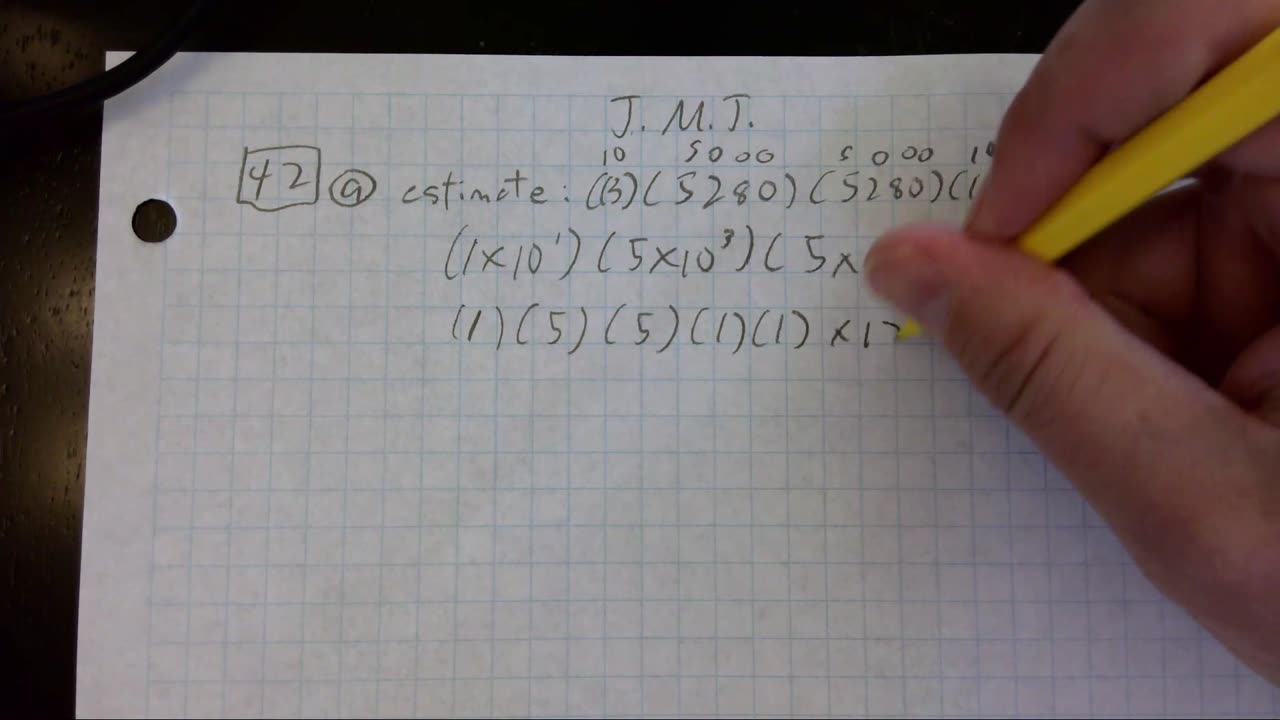 J. M. J.
10 5000 5000 1
42 a estimate: (13)(5280)(5280)(1
(1×10¹)(5×10³)(5×
(1)(5)(5)(1)(1) ×1